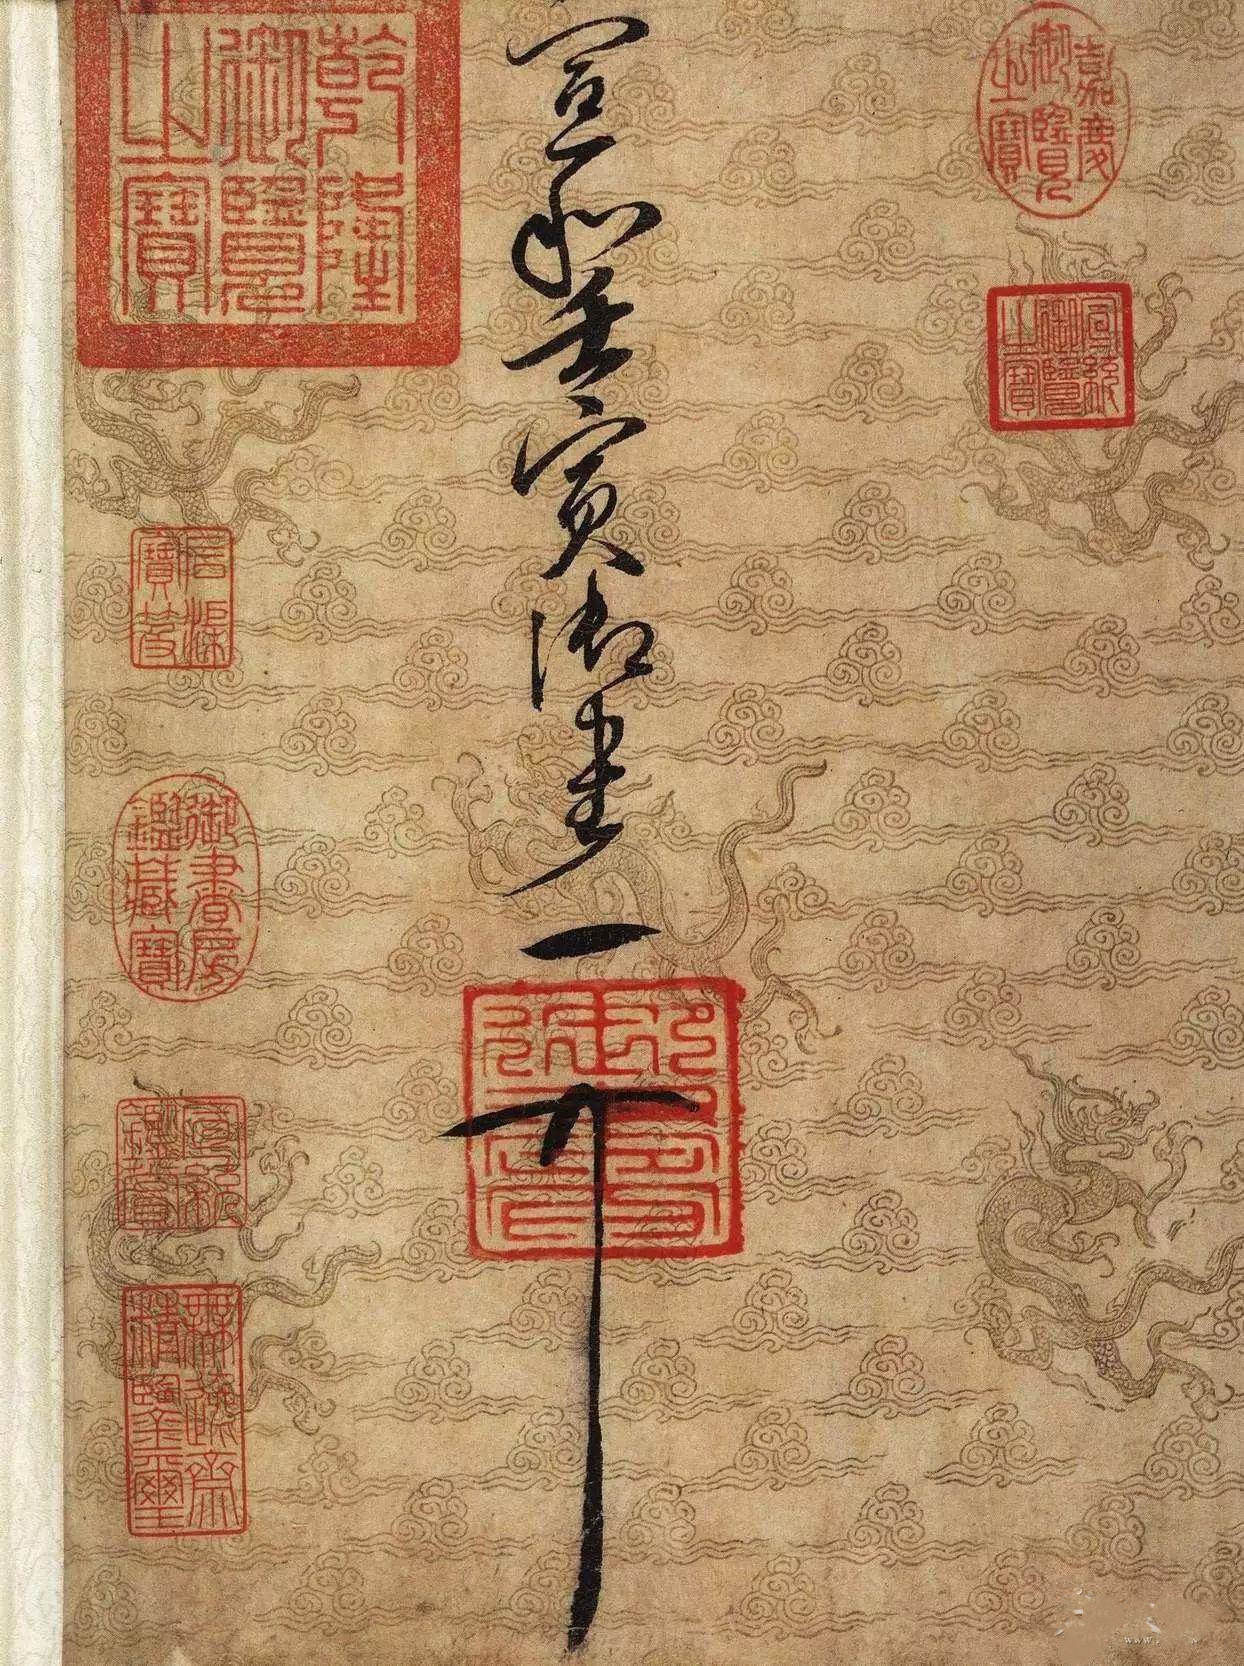 嘉慶御覽之寶
宣統御覽之寶
宣和壬寅御書
乾隆御覽之寶
石渠寶笈
御書房鑑藏寶
宣統鑑賞
無逸齋精鑒璽